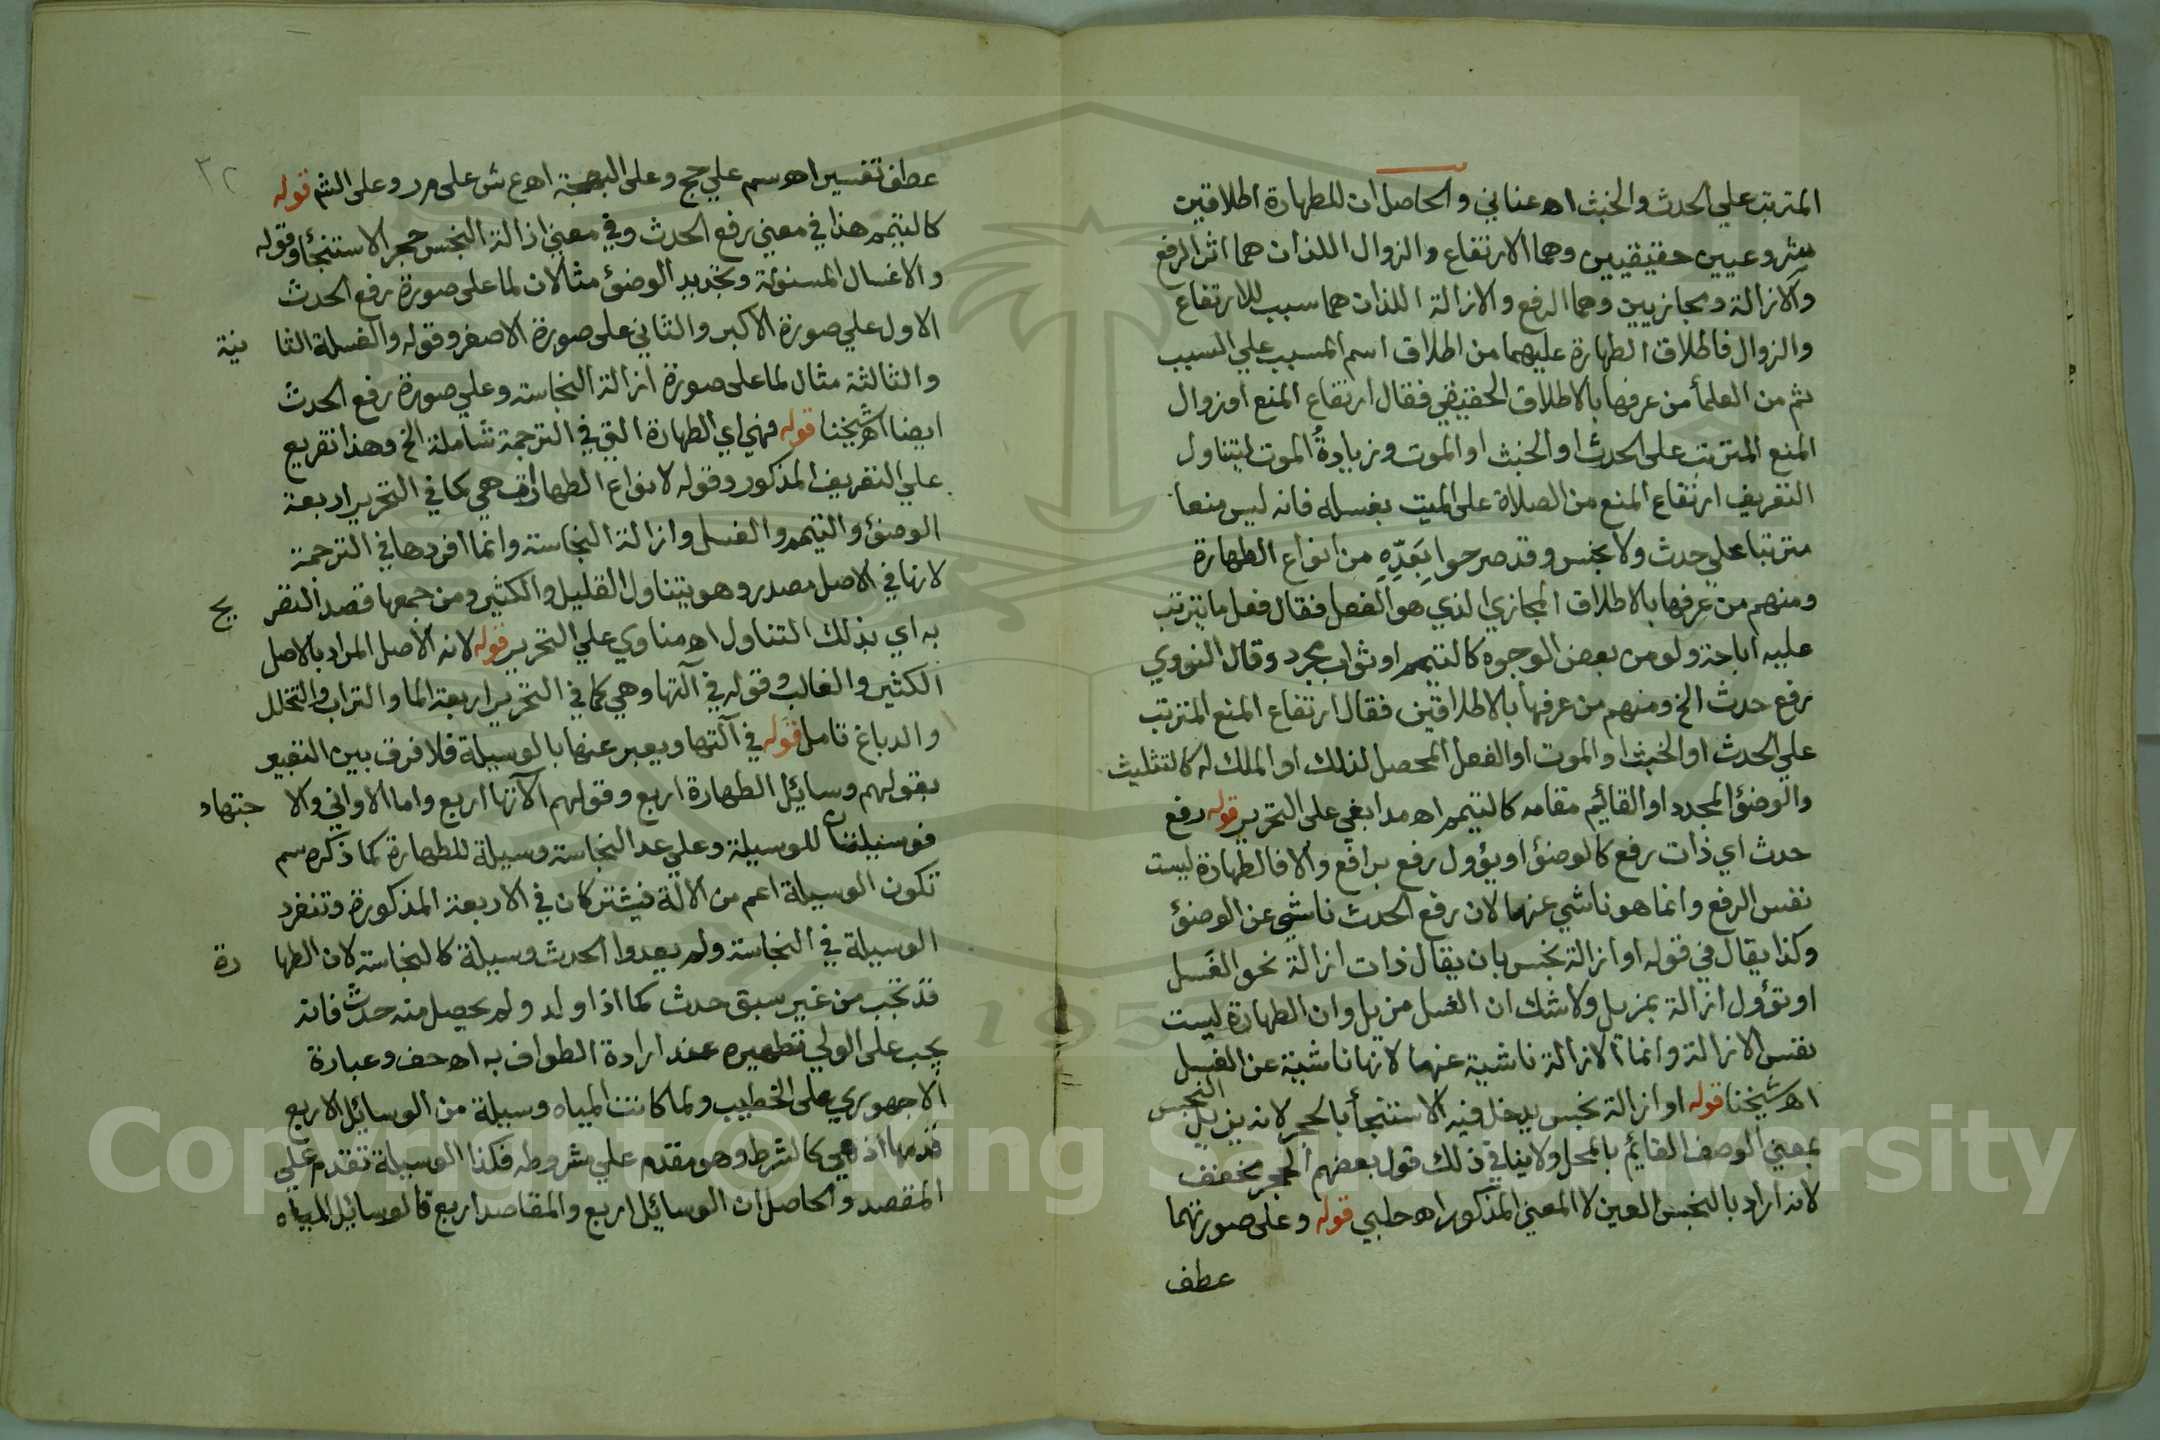 المترتب علي الحدث والخبث اه عناني والحاصل ان للطهارة اطلاقين
شروعيين حقيقيين وهما الارتفاع والزوال اللذان هما اثر الرفع
والازالة ومجازيين وهما الرفع والازالة اللذان هما سبب للارتفاع
والزوال فاطلاق الطهارة عليهما من اطلاق اسم المسبب علي السبب
ثم من العلمأ من عرفها بالاطلاق الحقيقي فقال ارتفاع المنع او زوال
المنع المترتب على الحدث او الخبث او الموت وزيادة الموت ليتناول
التعريف ارتفاع المنع من الصلاة على الميت بغسله فانه ليس منعا
مترتبا علي حدث ولا نجس وقد صرحوا بِعَدِّهِ من انواع الطهارة
ومنهم من عرفها بالاطلاق المجازي الذي هو الفعل فقال فعل ما يترتب
عليه اباحة ولو من بعض الوجوه كالتيمم او ثواب مجرد وقال النووي
رفع حدث الخ ومنهم من عرفها بالاطلاقين فقال ارتفاع المنع المترتب
علي الحدث او الخبث او الموت او الفعل المحصل لذلك او المكمل له كالتثليث
والوضؤ المجدد او القائيم مقامه كالتيمم اه مدابغي على التحرير قوله رفع
حدث اي ذات رفع كالوضؤ او يؤول رفع برافع والا فالطهارة ليست
نفس الرفع وانما هو ناشي عنها لان رفع الحدث ناشي عن الوضؤ
وكذا يقال في قوله او ازالة نجس بان يقال ذات ازالة نحو الغَسل
او تؤول ازالة بمزيل ولا شك ان الغسل مزيل وان الطهارة ليست
نفس الازالة وانما الازالة ناشية عنها لانها ناشية عن الغسل
اه شيخنا قوله او ازالة نجس يدخل فيه الاستنجأ بالحجر لانه يزيل النجس
بمعني الوصف القايم بالمحل ولا ينافي ذلك قول بعضهم الحجر مخفف
لانه اراد بالنجس العين لا المعني المذكور اه حلبي قوله وعلى صورتهما
عطف
٣٢
عطف تفسير اه سم علي حج وعلى البهجة اه ع ش على م ر وعلى الشم قوله
كالتيمم هذا في معني رفع الحدث وفي معني ازالة النجس حجر الاستنجأ وقوله
والاغسال المسنونة وتجديد الوضؤ مثالان لما على صورة رفع الحدث
الاول علي صورة الاكبر والثاني على صورة الاصغر وقوله والغسلة الثا نية
والثالثة مثال لما على صورة ازالة النجاسة وعلي صورة رفع الحدث
ايضا اه شيخنا قوله فهي اي الطهارة التي في الترجمة شاملة الخ وهذا تفريع
علي التعريف المذكور وقوله لانواع الطهارات هي كما في التحرير اربعة
الوضؤ والتيمم والغسل وازالة النجاسة وانما افردها في الترجمة
لانها في الاصل مصدر وهو يتناول القليل والكثير ومن جمعها قصد التصر يح
به اي بذلك التناول اه مناوي علي التحرير قوله لانه الاصل المراد بالاصل
الكثير والغالب وقوله في آلتها وهي كما في التحرير اربعة الما والتراب والتخلل
والدباغ تامل قوله في آلتها ويعبر عنها بالوسيلة فلا فرق بين التعبير
بقولهم وسائيل الطهارة اربع وقولهم آلآتها اربع واما الاواني والا جتهاد
فوسيلتان للوسيلة وعلي عد النجاسة وسيلة للطهارة كما ذكره سم
تكون الوسيلة اعم من الالة فيشتركان في الاربعة المذكورة وتنفرد
الوسيلة في النجاسة ولم يعدوا الحدث وسيلة كالنجاسة لان الطها رة
قد تجب من غير سبق حدث كما اذا ولد ولم يحصل منه حدث فانه
يجب على الولي تطهيره عند ارادة الطواف به اه حف وعبارة
الاجهوري على الخطيب ولما كانت المياه وسيلة من الوسائيل الاربع
قدمها اذ هي كالشرط وهو مقدم علي مشروطه فكذا الوسيلة تقدم علي
المقصد والحاصل ان الوسائيل اربع والمقاصد اربع فالوسائيل المياه
Copyright © King Saud University
1957